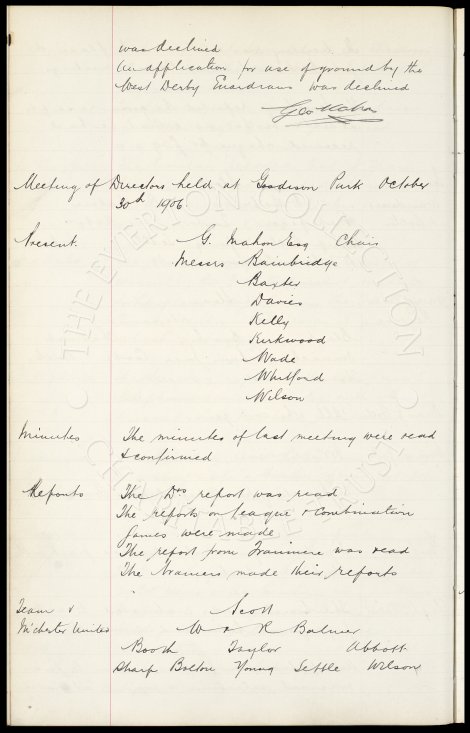 was declined
An application for use of ground by the
West Derby Guardians was declined
Geo Mahon
Meeting of Directors held at Goodison Park October
30th 1906.
Present. G. Mahon Esq Chair
Messrs Bainbridge
Baxter
Davies
Kelly
Kirkwood
Wade
Whitford
Wilson
Minutes The minutes of last meeting were read
& confirmed
Reports The Drs report was read
The reports on League & Combination
Games were made
The report from Trainer was read
The made their reports
Team v Scott
M'chester United W & R Balmer
Booth Taylor Abbott
Sharp Bolton Young Settle Wilson
THE EVERTON COLLECTION
CHARITABLE TRUST